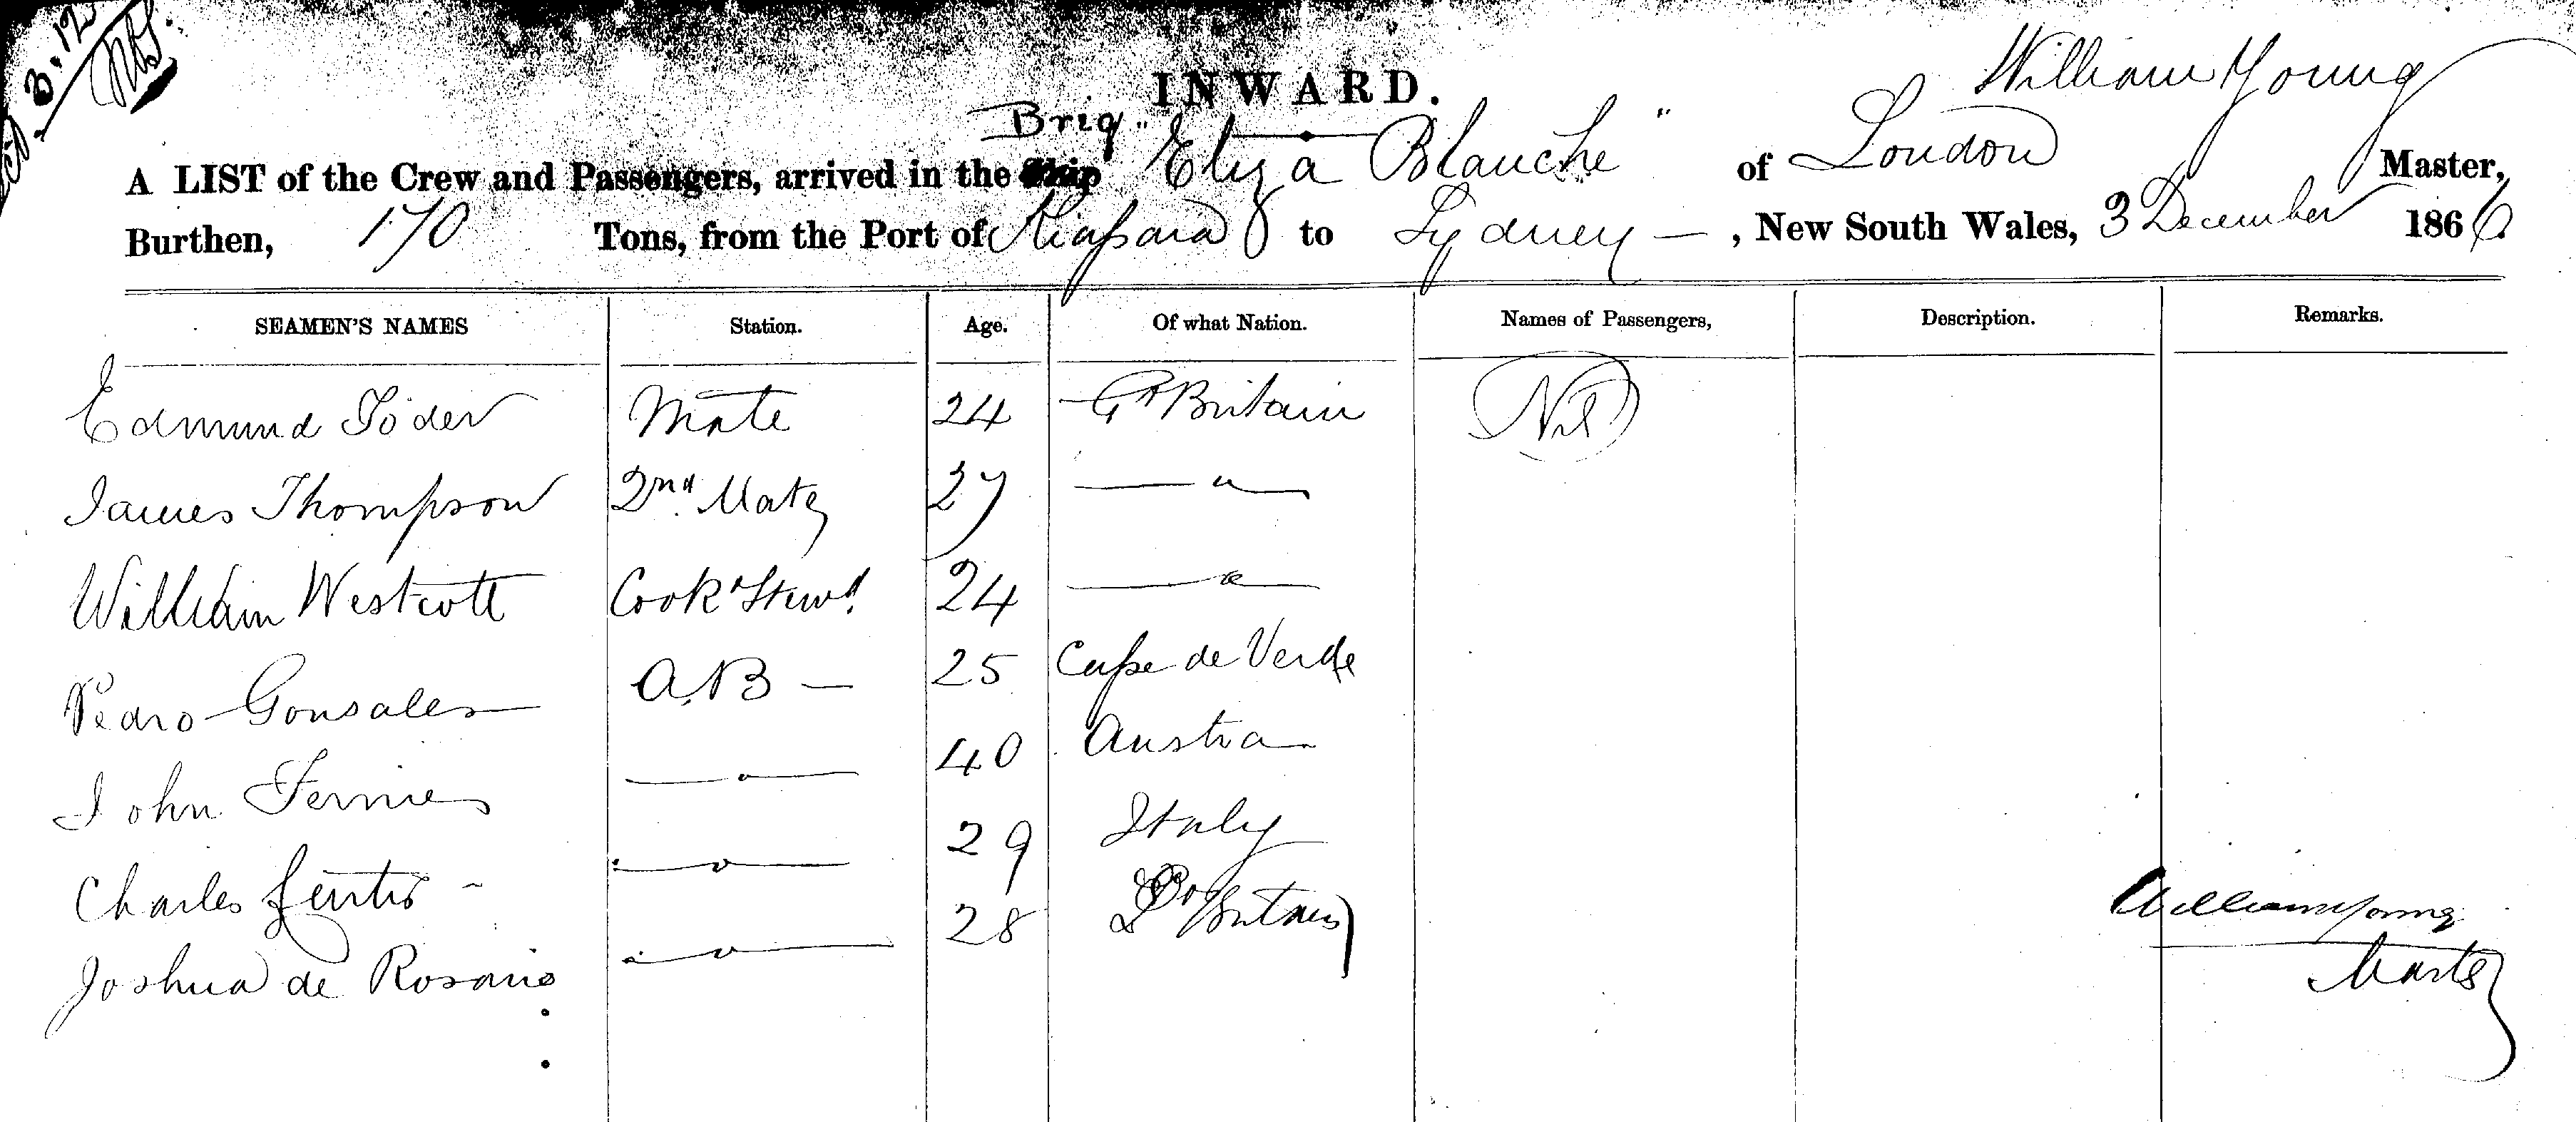 3.12
INWARD.
William Young
A LIST of the Crew and Passengers, arrived in the Brig "Eliza Blanche" of London Master,
Burthen, 170 Tons, from the Port of Kiapara to Sydney — , New South Wales, 3 December 1866
SEAMEN'S NAMES Station. Age. Of what Nation. Names of Passengers, Description. Remarks.
Edmund Söder Mate 24 Gt Britain Nil
James Thompson 2nd Mate 27 — " —
William Westcott Cook & Stewd 24 — " —
Pedro Gonsales A.B — 25 Cape de Verde
John — " — 40 Austria
Charles — " — 29 Italy
Joshua de Rosario — " — 28 Gt Britain
William Young
Master